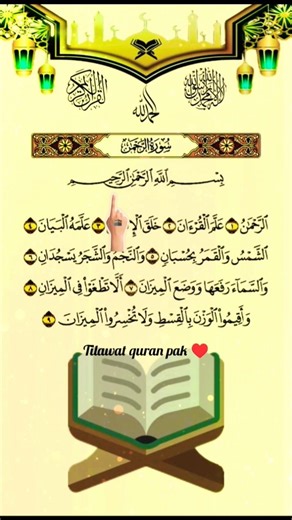 القرآن الكريم
الحمد لله
لا إله إلا الله محمد رسول الله
سورة الرحمن
بِسْمِ اللَّهِ الرَّحْمَٰنِ الرَّحِيمِ
الرَّحْمَٰنُ ١ عَلَّمَ الْقُرْءَانَ ٢ خَلَقَ ٣ عَلَّمَهُ الْبَيَانَ ٤
الشَّمْسُ وَالْقَمَرُ بِحُسْبَانٍ ٥ وَالنَّجْمُ وَالشَّجَرُ يَسْجُدَانِ ٦
وَالسَّمَاءَ رَفَعَهَا وَوَضَعَ الْمِيزَانَ ٧ أَلَّا تَطْغَوْا فِي الْمِيزَانِ ٨
وَأَقِيمُوا الْوَزْنَ بِالْقِسْطِ وَلَا تُخْسِرُوا الْمِيزَانَ ٩
Tilawat quran pak ❤️